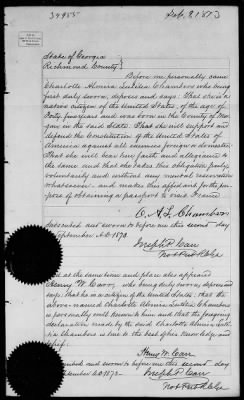 34955
Feb. 21 / 873
State of Georgia
Richmond County
Before me personally came
Charlotte Almira Lutitia Chambers who being
first duly sworn, deposes and says: That she is a
native citizen of the United States, of the age of
Forty-four years and was born in the County of
in the said State. That she will support and
defend the Constitution of the United States of
America against all enemies foreign or domestic,
That she will bear true faith and allegiance to
the same and that she takes this obligation freely,
voluntarily and without any mental reservation
whatsoever. and makes this affidavit for the pur-
pose of obtaining a passport to visit France
C. A. L. Chambers
Subscribed and sworn to before me this second day
September A.D. 1873.
Joseph P. Carr
Not Pub R Co Ga
at the same time and place also appeared
Henry W. Carr, who being duly sworn, deposes and
says: that he is a citizen of the United States; that the
above-named Charlotte Almira Lutitia Chambers
is personally well known to him and that the foregoing
declaration made by the said Charlotte Almira Luti-
tia Chambers is true to the best of his knowledge and
belief.
Henry W. Carr
and sworn to before me this second day
September A.D. 1873
Joseph P. Carr
Not Pub R Co Ga